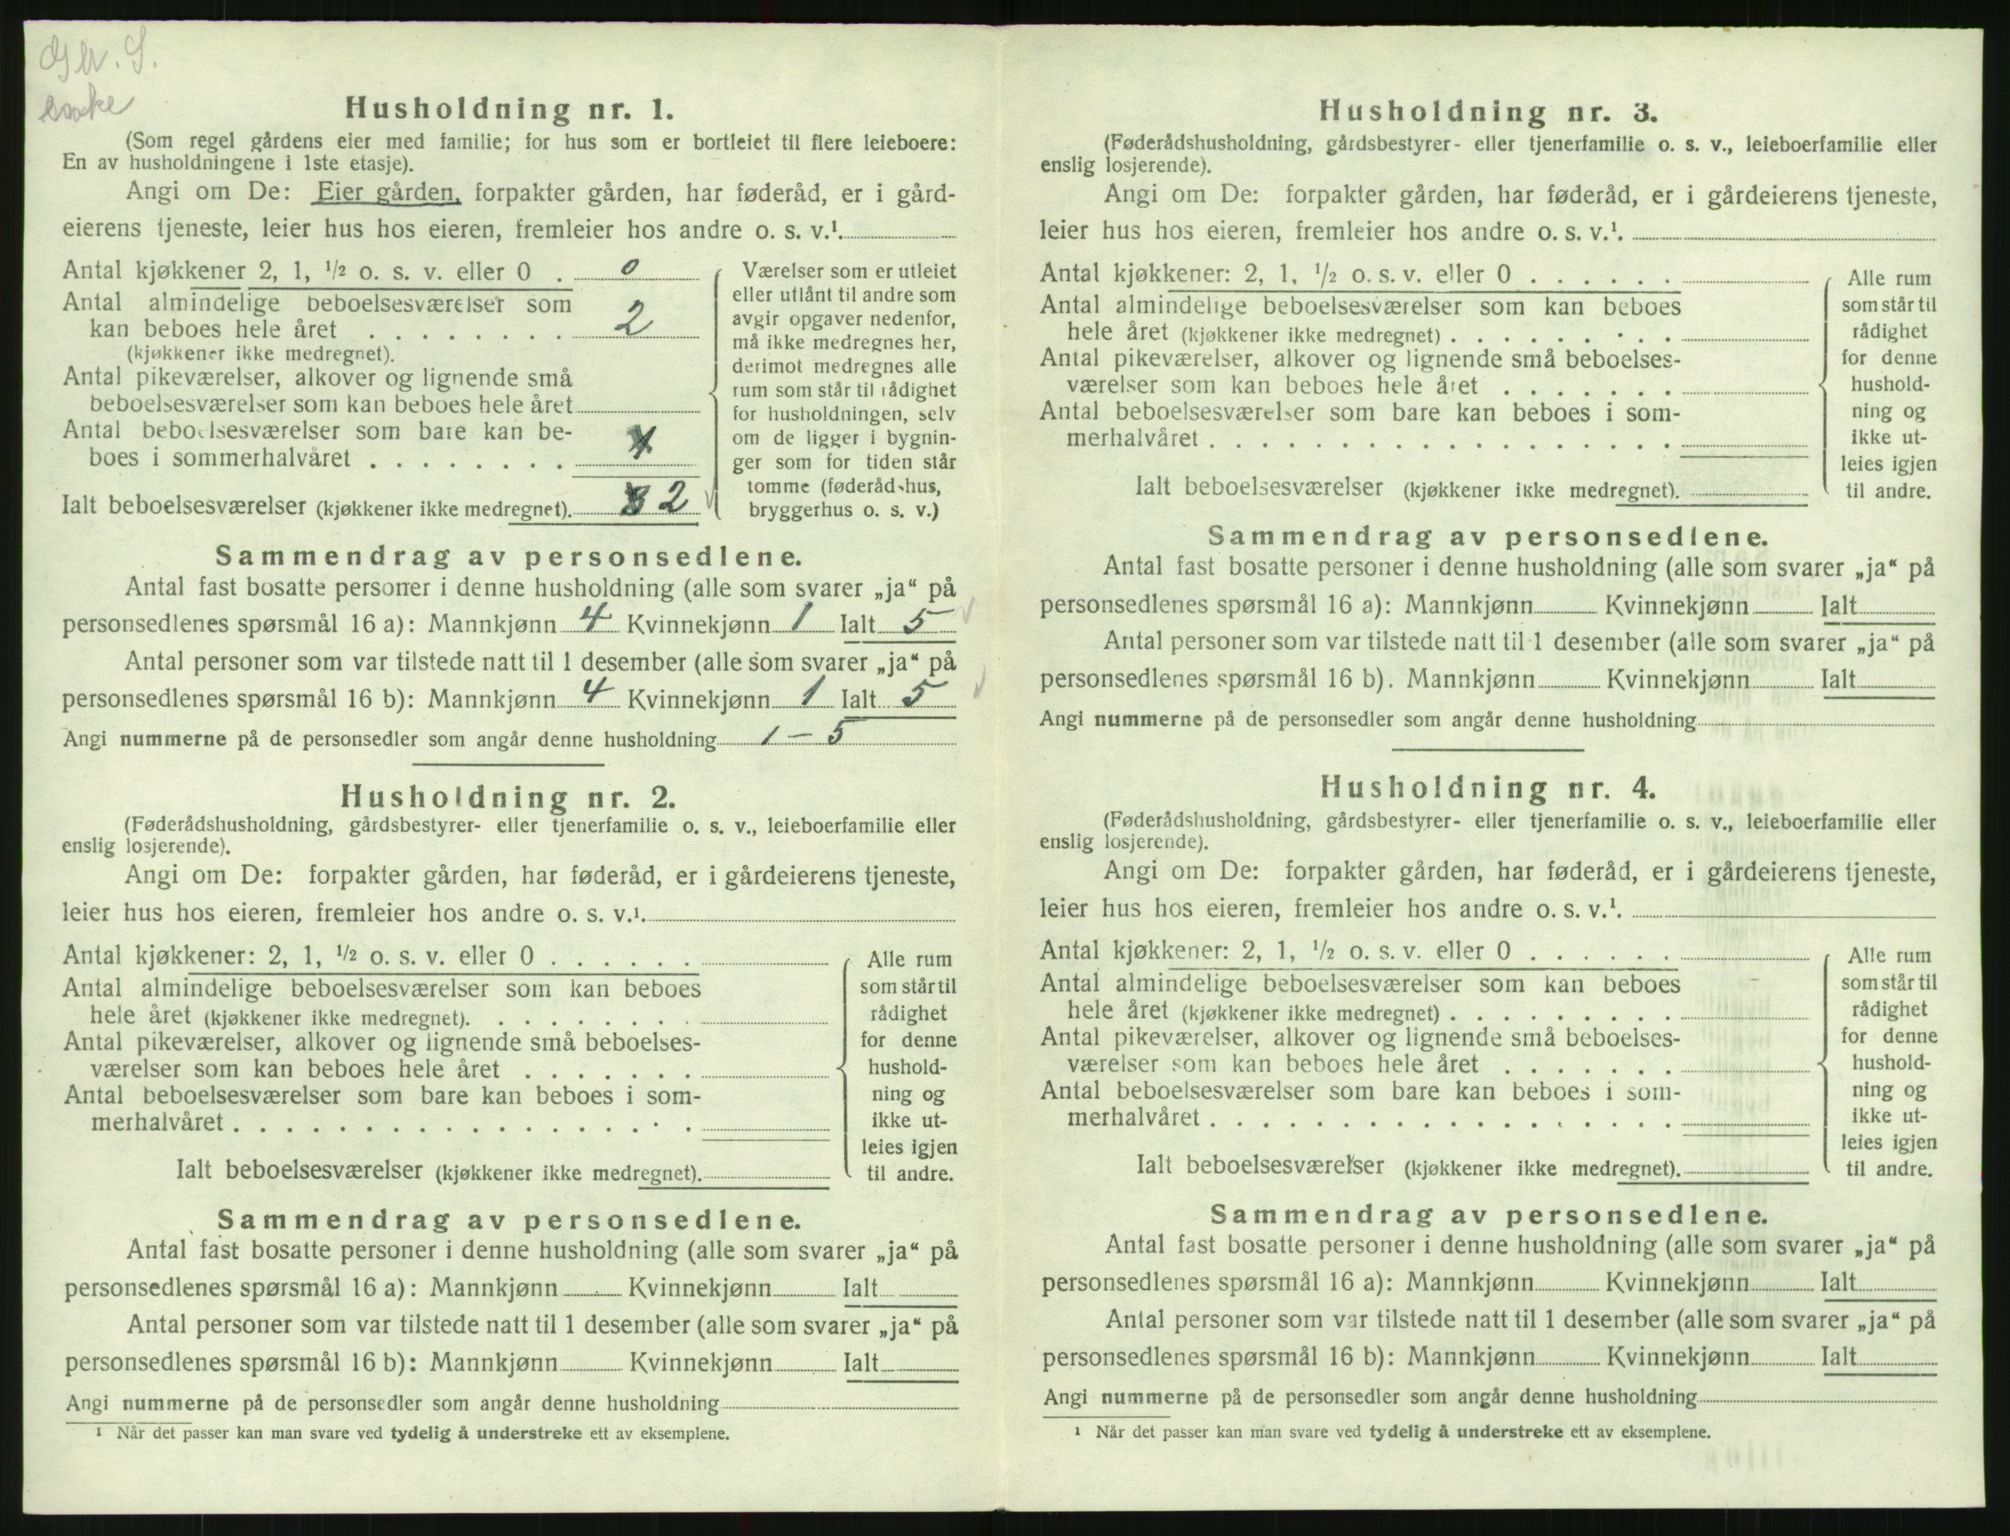 Husholdning nr. 1.
(Som regel gårdens eier med familie; for hus som er bortleiet til flere leieboere:
En av husholdningene i 1ste etasje).
Angi om De: Eier gården, forpakter gården, har føderåd, er i gård-
eierens tjeneste, leier hus hos eieren, fremleier hos andre o. s. v.¹.
Antal kjøkkener 2, 1, ½ o. s. v. eller 0 . 0
Antal almindelige beboelsesværelser som
kan beboes hele året . . . . . . . . 2
(kjøkkener ikke medregnet).
Antal pikeværelser, alkover og lignende små
beboelsesværelser som kan beboes hele året
Antal beboelsesværelser som bare kan be-
boes i sommerhalvåret . . . . . . . .
Ialt beboelsesværelser (kjøkkener ikke medregnet). 2
Værelser som er utleiet
eller utlånt til andre som
avgir opgaver nedenfor,
må ikke medregnes her,
derimot medregnes alle
rum som står til rådighet
for husholdningen, selv
om de ligger i bygnin-
ger som for tiden står
tomme (føderådshus,
bryggerhus o. s. v.)
Sammendrag av personsedlene.
Antal fast bosatte personer i denne husholdning (alle som svarer „ja“ på
personsedlenes spørsmål 16 a): Mannkjønn 4 Kvinnekjønn 1 Ialt 5
Antal personer som var tilstede natt til 1 desember (alle som svarer „ja“ på
personsedlenes spørsmål 16 b): Mannkjønn 4 Kvinnekjønn 1 Ialt 5
Angi nummerne på de personsedler som angår denne husholdning 1 – 5
Husholdning nr. 2.
(Føderådshusholdning, gårdsbestyrer- eller tjenerfamilie o. s. v., leieboerfamilie eller
enslig losjerende).
Angi om De: forpakter gården, har føderåd, er i gårdeierens tjeneste,
leier hus hos eieren, fremleier hos andre o. s. v.¹.
Antal kjøkkener: 2, 1, ½ o. s. v. eller 0 . . . . . .
Antal almindelige beboelsesværelser som kan beboes
hele året (kjøkkener ikke medregnet). . . . . . . . .
Antal pikeværelser, alkover og lignende små beboelses-
værelser som kan beboes hele året . . . . . . .
Antal beboelsesværelser som bare kan beboes i som-
merhalvåret . . . . . . . . . . . . . . . . . .
Ialt beboelsesværelser (kjøkkener ikke medregnet).
Alle rum
som står til
rådighet
for denne
hushold-
ning og
ikke ut-
leies igjen
til andre.
Sammendrag av personsedlene.
Antal fast bosatte personer i denne husholdning (alle som svarer „ja“ på
personsedlenes spørsmål 16 a): Mannkjønn Kvinnekjønn Ialt
Antal personer som var tilstede natt til 1 desember (alle som svarer „ja“ på
personsedlenes spørsmål 16 b): Mannkjønn Kvinnekjønn Ialt
Angi nummerne på de personsedler som angår denne husholdning
¹ Når det passer kan man svare ved tydelig å understreke ett av eksemplene.
Husholdning nr. 3.
(Føderådshusholdning, gårdsbestyrer- eller tjenerfamilie o. s. v., leieboerfamilie eller
enslig losjerende).
Angi om De: forpakter gården, har føderåd, er i gårdeierens tjeneste,
leier hus hos eieren, fremleier hos andre o. s. v.¹.
Antal kjøkkener: 2, 1, ½ o. s. v. eller 0 . . . . . .
Antal almindelige beboelsesværelser som kan beboes
hele året (kjøkkener ikke medregnet) . . . . . . . . .
Antal pikeværelser, alkover og lignende små beboelses-
værelser som kan beboes hele året . . . . . . .
Antal beboelsesværelser som bare kan beboes i som-
merhalvåret . . . . . . . . . . . . . . . . . .
Ialt beboelsesværelser (kjøkkener ikke medregnet).
Alle rum
som står til
rådighet
for denne
hushold-
ning og
ikke ut-
leies igjen
til andre.
Sammendrag av personsedlene.
Antal fast bosatte personer i denne husholdning (alle som svarer „ja“ på
personsedlenes spørsmål 16 a): Mannkjønn Kvinnekjønn Ialt
Antal personer som var tilstede natt til 1 desember (alle som svarer „ja“ på
personsedlenes spørsmål 16 b). Mannkjønn Kvinnekjønn Ialt
Angi nummerne på de personsedler som angår denne husholdning
Husholdning nr. 4.
(Føderådshusholdning, gårdsbestyrer- eller tjenerfamilie o. s. v., leieboerfamilie eller
enslig losjerende).
Angi om De: forpakter gården, har føderåd, er i gårdeierens tjeneste,
leier hus hos eieren, fremleier hos andre o. s. v.¹.
Antal kjøkkener: 2, 1, ½ o. s. v. eller 0 . . . . . .
Antal almindelige beboelsesværelser som kan beboes
hele året (kjøkkener ikke medregnet) . . . . . . . . .
Antal pikeværelser, alkover og lignende små beboelses-
værelser som kan beboes hele året . . . . . . .
Antal beboelsesværelser som bare kan beboes i som-
merhalvåret . . . . . . . . . . . . . . . . . .
Ialt beboelsesværelser (kjøkkener ikke medregnet).
Alle rum
som står til
rådighet
for denne
hushold-
ning og
ikke ut-
leies igjen
til andre.
Sammendrag av personsedlene.
Antal fast bosatte personer i denne husholdning (alle som svarer „ja“ på
personsedlenes spørsmål 16 a): Mannkjønn Kvinnekjønn Ialt
Antal personer som var tilstede natt til 1 desember (alle som svarer „ja“ på
personsedlenes spørsmål 16 b): Mannkjønn Kvinnekjønn Ialt
Angi nummerne på de personsedler som angår denne husholdning
¹ Når det passer kan man svare ved tydelig å understreke ett av eksemplene.